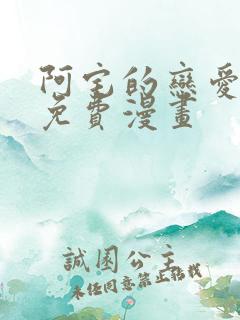 阿宅的戀愛
免費漫畫
誠園公主
未经同意禁止转载